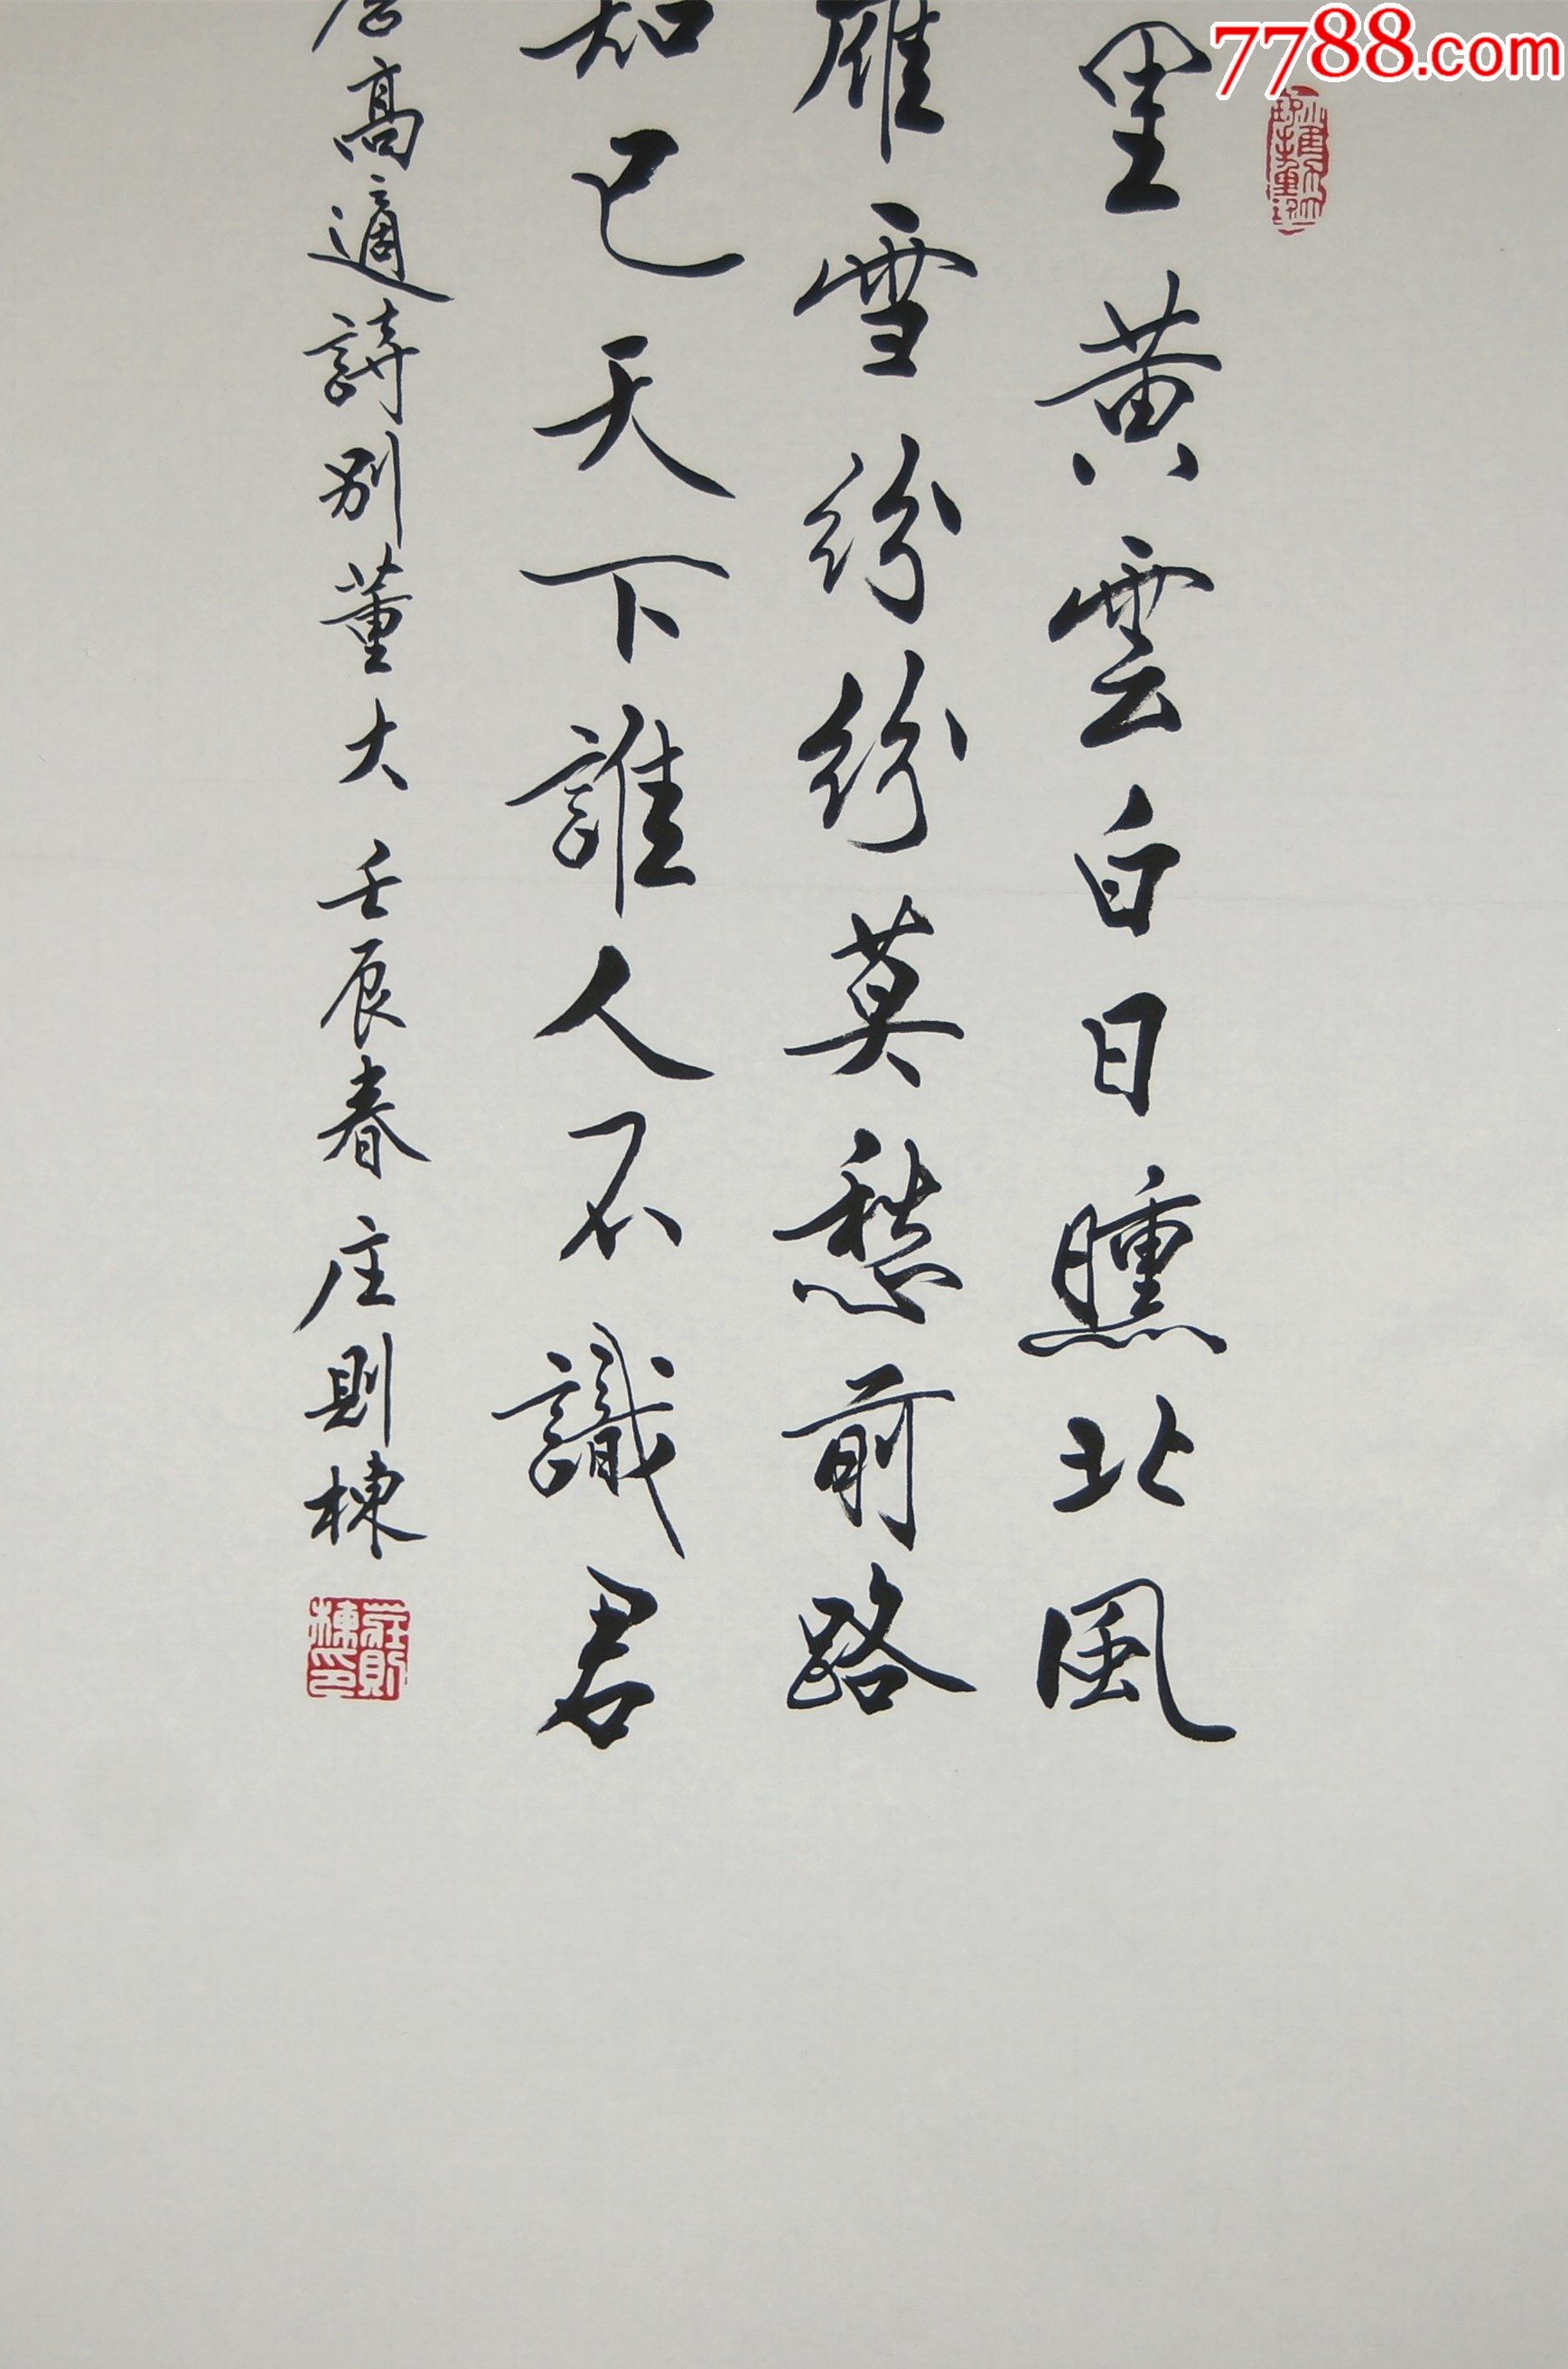 里黄雲白日曛北風
雁雪紛紛莫愁前路
知己天下誰人不識君
唐高適詩別董大 壬辰春 庄則棟
庄則棟印
7788.com